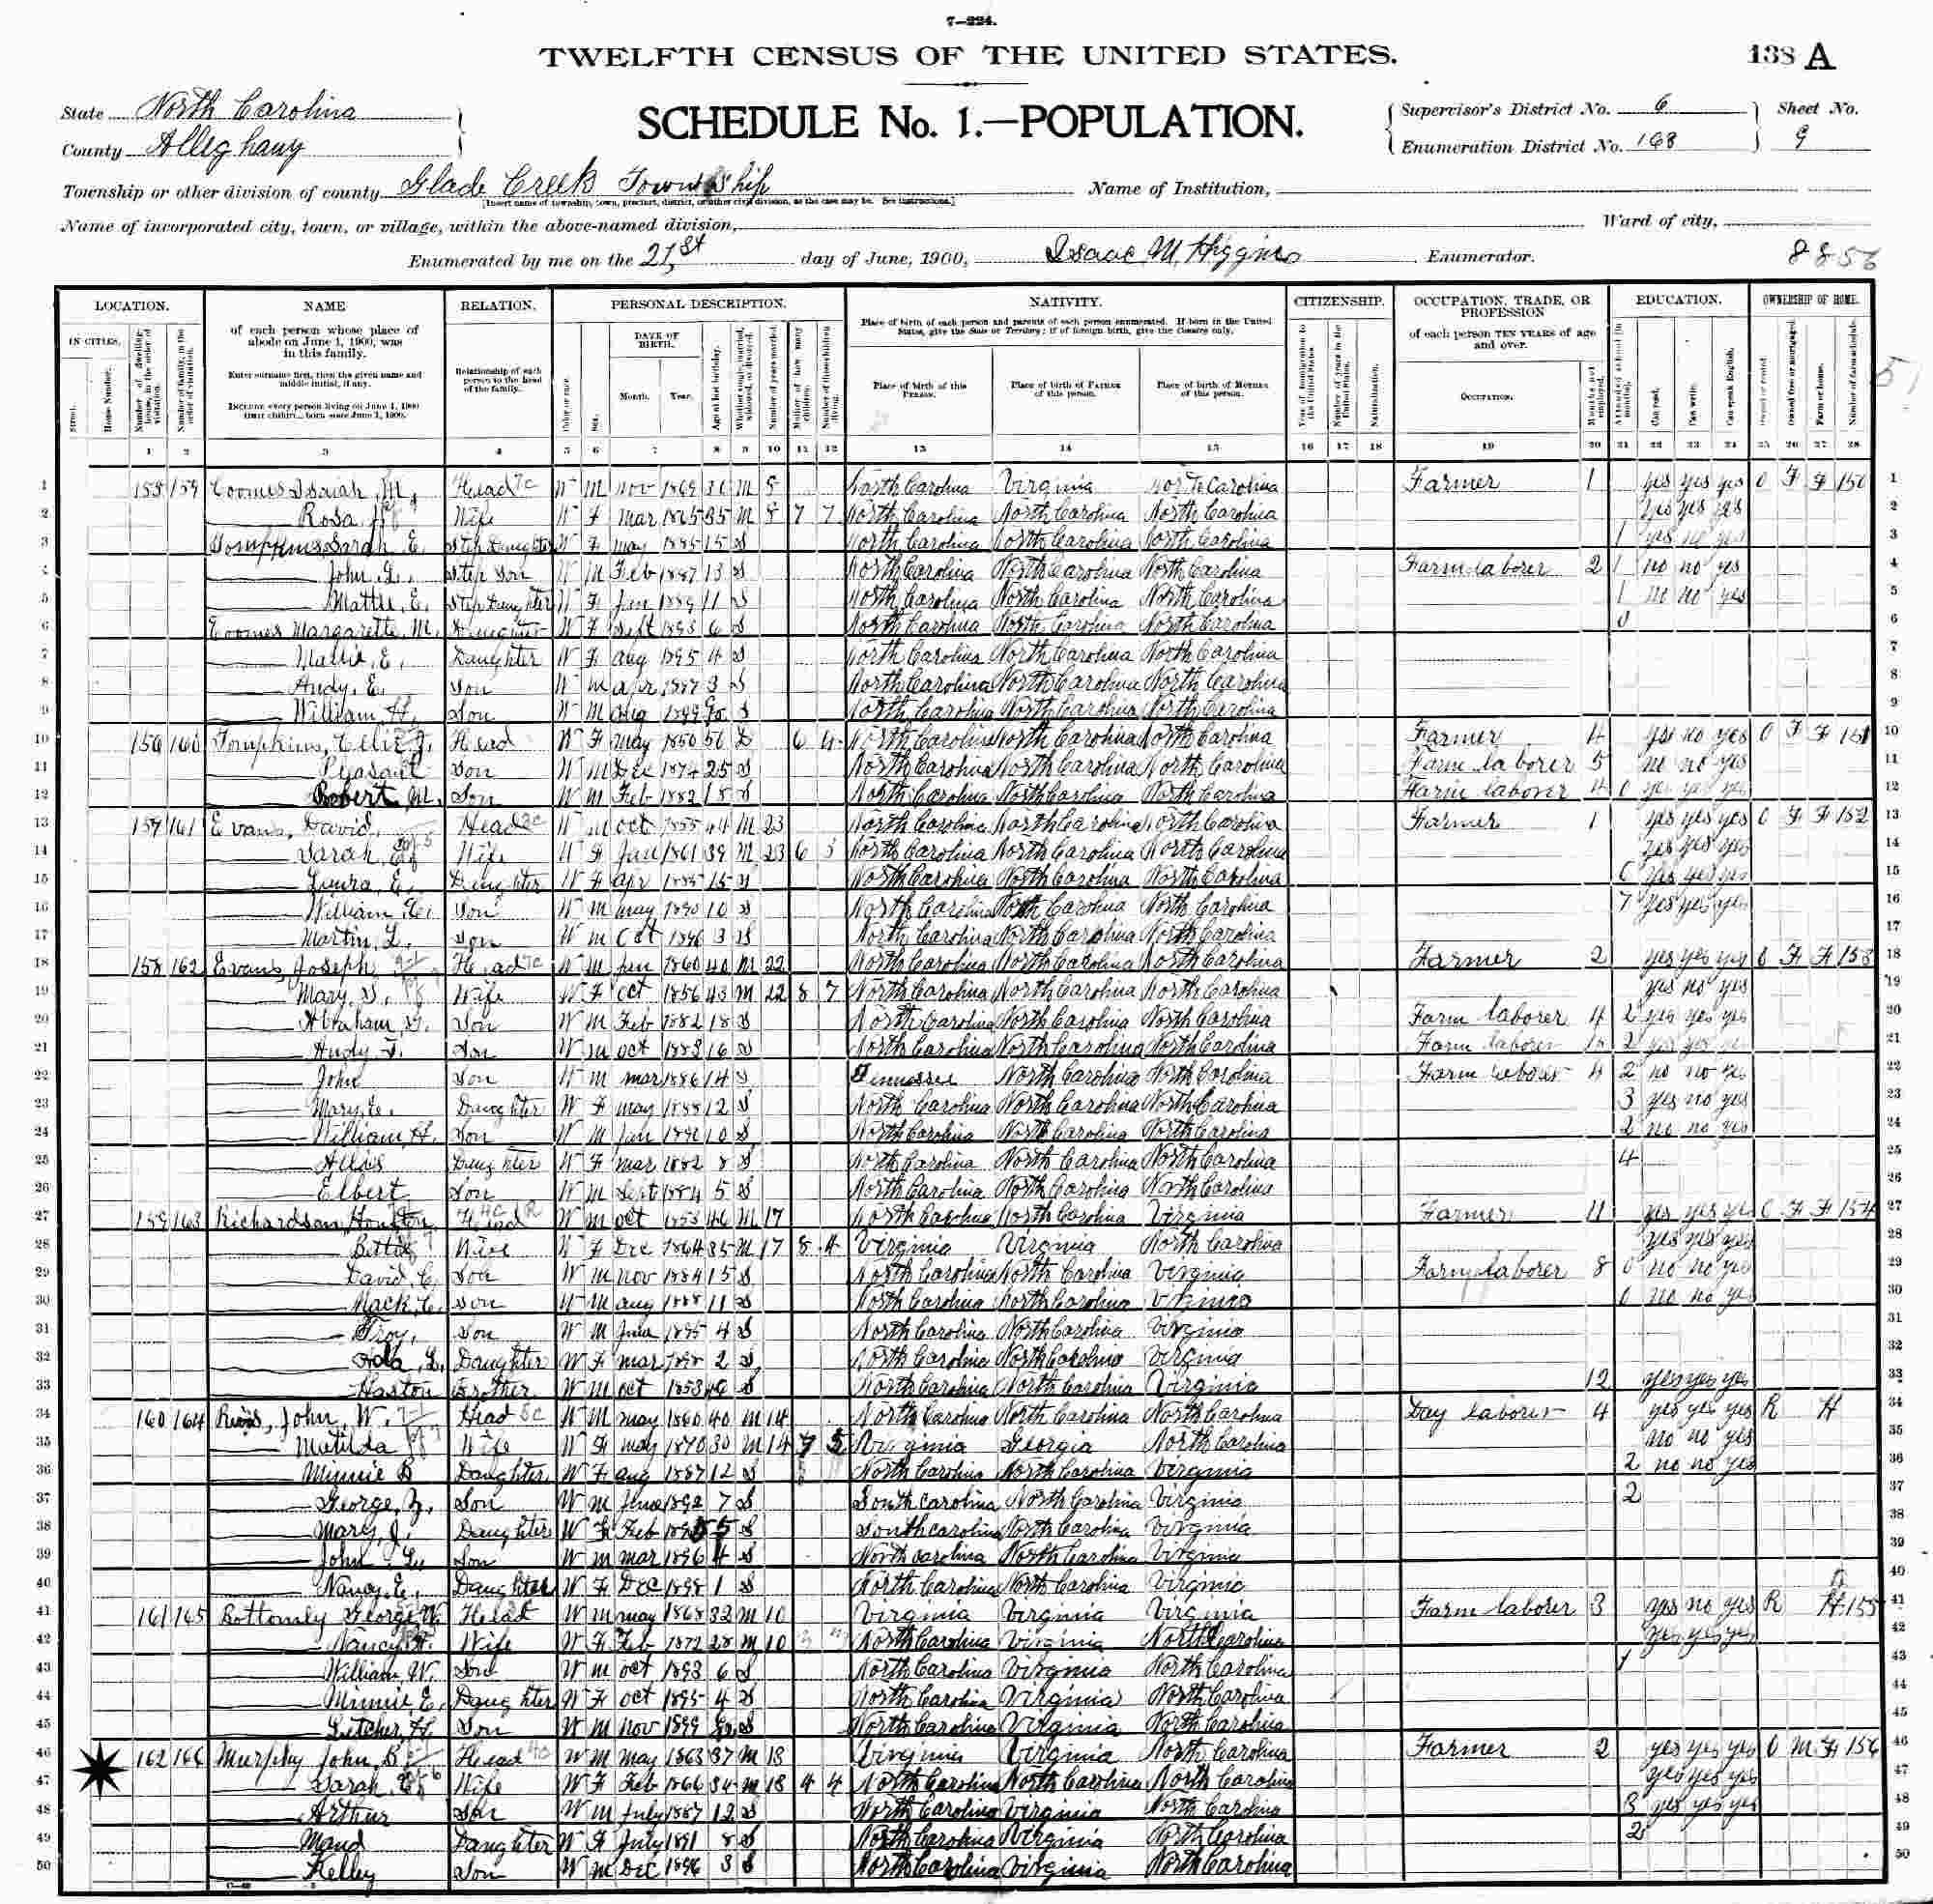 7—224.
TWELFTH CENSUS OF THE UNITED STATES.
138 A
State North Carolina
County Alleghany
SCHEDULE No. 1.—POPULATION.
Supervisor's District No. 6 Sheet No.
Enumeration District No. 168 9
Township or other division of county Glade Creek Township Name of Institution,
[Insert name of township, town, precinct, district, or other civil division, as the case may be. See instructions.]
Name of incorporated city, town, or village, within the above-named division, Ward of city,
Enumerated by me on the 21st day of June, 1900, Isaac M. Higgins Enumerator.
8856
LOCATION. NAME RELATION. PERSONAL DESCRIPTION. NATIVITY. CITIZENSHIP. OCCUPATION, TRADE, OR PROFESSION EDUCATION. OWNERSHIP OF HOME.
IN CITIES. of each person whose place of abode on June 1, 1900, was in this family. Relationship of each person to the head of the family. DATE OF BIRTH. Place of birth of each person and parents of each person enumerated. If born in the United States, give the State or Territory; if of foreign birth, give the Country only. of each person TEN YEARS of age and over.
Enter surname first, then the given name and middle initial, if any.
INCLUDE every person living on June 1, 1900.
Month. Year. Place of birth of this PERSON. Place of birth of FATHER of this person. Place of birth of MOTHER of this person. OCCUPATION.
1 2 3 4 5 6 7 8 9 10 11 12 13 14 15 16 17 18 19 20 21 22 23 24 25 26 27 28
1 155 159 Coomes Isaiah M. Head W M Nov 1869 M North Carolina Virginia North Carolina Farmer 1 yes yes yes O F F 150
2 Rosa Wife W F Mar 1865 35 M 8 7 7 North Carolina North Carolina North Carolina yes yes yes
3 Tompkins Sarah E. Step Daughter W F May 1885 15 S North Carolina North Carolina North Carolina 1 yes no yes
4 John L. Step Son W M Feb 1887 13 S North Carolina North Carolina North Carolina Farm laborer 2 1 no no yes
5 Mattie E. Step Daughter W F Jan 1889 11 S North Carolina North Carolina North Carolina 1 no no yes
6 Coomes Margarette M. Daughter W F Sept 1893 6 S North Carolina North Carolina North Carolina
7 E. Daughter W F Aug 1895 4 S North Carolina North Carolina North Carolina
8 Andy E. Son W M Apr 1897 3 S North Carolina North Carolina North Carolina
9 William H. Son W M Aug 1899 S North Carolina North Carolina North Carolina
10 156 160 Tompkins, Head W F May 1850 50 6 4 North Carolina North Carolina North Carolina Farmer 4 yes no yes O F F 151
11 Pleasant Son W M Dec 1874 25 S North Carolina North Carolina North Carolina Farm laborer 5 no no yes
12 Robert M. Son W M Feb 1882 18 S North Carolina North Carolina North Carolina Farm laborer 4 0 yes yes yes
13 157 161 Evans, David, Head W M Oct 1855 44 M 23 North Carolina North Carolina North Carolina Farmer 1 yes yes yes O F F 152
14 Sarah Wife W F Jan 1861 39 M 23 6 3 North Carolina North Carolina North Carolina yes yes yes
15 Laura E. Daughter W F Apr 1885 15 S North Carolina North Carolina North Carolina yes yes yes
16 William Son W M May 1890 10 S North Carolina North Carolina North Carolina 7 yes yes yes
17 Martin L. Son W M Oct 1896 3 S North Carolina North Carolina North Carolina
18 158 162 Evans, Joseph Head W M Jan 1860 40 M 22 North Carolina North Carolina North Carolina Farmer 2 yes yes yes O F F 153
19 Mary Wife W F Oct 1856 43 M 22 8 7 North Carolina North Carolina North Carolina yes no yes
20 Abraham Son W M Feb 1882 18 S North Carolina North Carolina North Carolina Farm laborer 4 2 yes yes yes
21 Andy Son W M Oct 1883 16 S North Carolina North Carolina North Carolina Farm laborer 2 yes yes
22 John Son W M Mar 1886 14 S Tennessee North Carolina North Carolina Farm laborer 4 2 no no yes
23 Mary E. Daughter W F May 1888 12 S North Carolina North Carolina North Carolina 3 yes no yes
24 William H. Son W M Jan 1890 10 S North Carolina North Carolina North Carolina 2 no no yes
25 Daughter W F Mar 1892 8 S North Carolina North Carolina North Carolina 4
26 Elbert Son W M Sept 1894 5 S North Carolina North Carolina North Carolina
27 159 163 Richardson, Houston, Head W M Oct 1853 46 M 17 North Carolina North Carolina Virginia Farmer 11 yes yes yes O F F 154
28 Bettie Wife W F Dec 1864 35 M 17 8 4 Virginia Virginia North Carolina yes yes yes
29 David C. Son W M Nov 1884 15 S North Carolina North Carolina Virginia Farm laborer 8 0 no no yes
30 Mack C. Son W M Aug 1888 11 S North Carolina North Carolina Virginia 0 no no yes
31 Troy, Son W M June 1895 4 S North Carolina North Carolina Virginia
32 Ada L. Daughter W F Mar 1898 2 S North Carolina North Carolina Virginia
33 Haston Brother W M Oct 1853 46 S North Carolina North Carolina Virginia 12 yes yes yes
34 160 164 John W. Head W M May 1860 40 M 14 North Carolina North Carolina North Carolina Day laborer 4 yes yes yes R H
35 Matilda Wife W F May 1870 30 M 14 7 5 Virginia Georgia North Carolina no no yes
36 Minnie B Daughter W F Aug 1887 12 S North Carolina North Carolina Virginia 2 no no yes
37 George Z. Son W M June 1892 7 S South Carolina North Carolina Virginia 2
38 Mary J. Daughter W F Feb 1895 5 S South Carolina North Carolina Virginia
39 John L. Son W M Mar 1896 4 S North Carolina North Carolina Virginia
40 Nancy E. Daughter W F Dec 1898 1 S North Carolina North Carolina Virginia
41 161 165 Bottomly George W. Head W M May 1868 32 M 10 Virginia Virginia Virginia Farm laborer 3 yes no yes R H 155
42 Nancy Wife W F Feb 1872 28 M 10 North Carolina Virginia North Carolina yes yes yes
43 William W. Son W M Oct 1893 6 S North Carolina Virginia North Carolina 1
44 Minnie E. Daughter W F Oct 1895 4 S North Carolina Virginia North Carolina
45 Letcher H. Son W M Nov 1899 S North Carolina Virginia North Carolina
46 162 166 Murphy John B. Head W M May 1863 37 M 18 Virginia Virginia North Carolina Farmer 2 yes yes yes O M F 156
47 Sarah Wife W F Feb 1866 34 M 18 4 4 North Carolina North Carolina North Carolina yes yes yes
48 Arthur Son W M July 1887 12 S North Carolina Virginia North Carolina 3 yes yes yes
49 Maud Daughter W F July 1891 8 S North Carolina Virginia North Carolina 2
50 Kelley Son W M Dec 1896 3 S North Carolina Virginia North Carolina